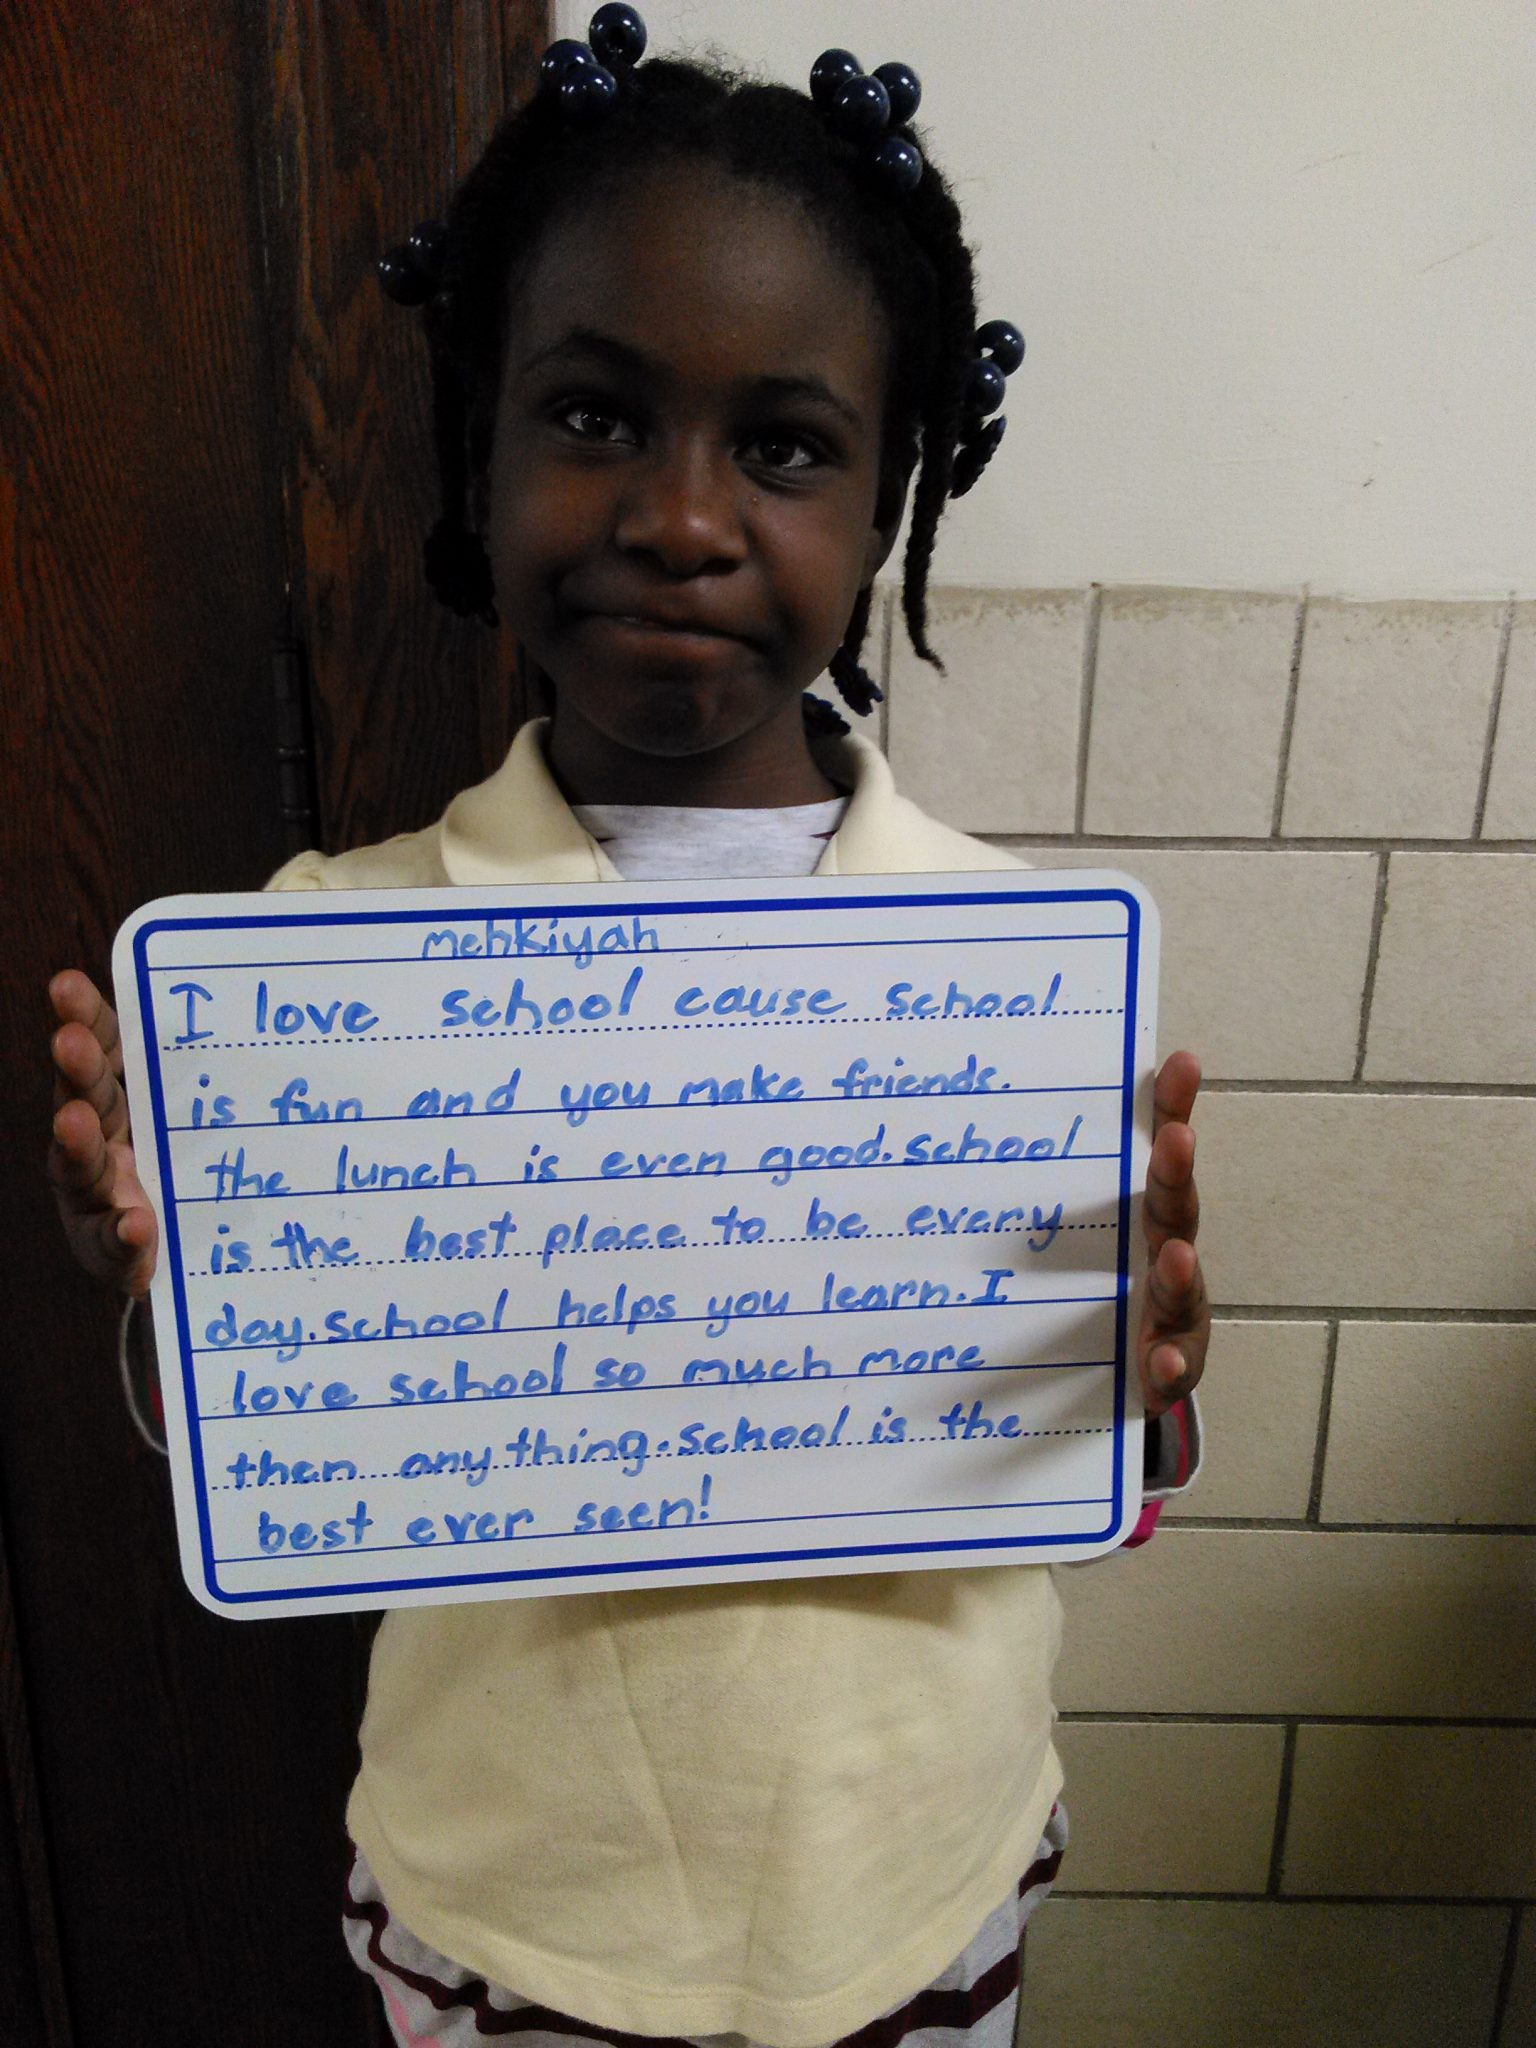 mehkiyah
I love school cause school
is fun and you make friends.
the lunch is even good.school
is the best place to be every
day.school helps you learn.I
love school so much more
then any thing.school is the
best ever seen!